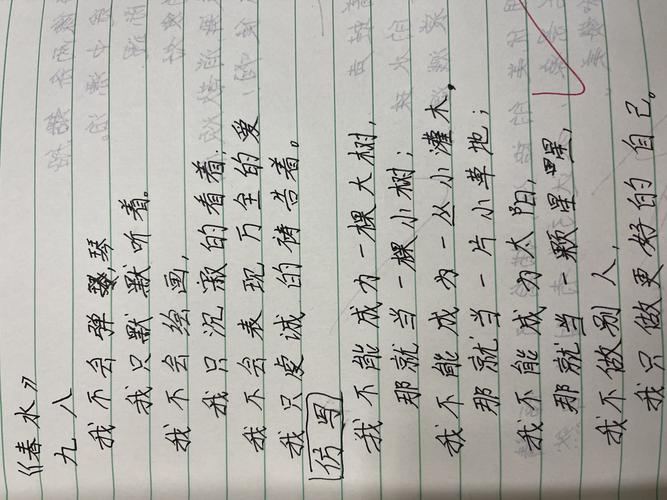 《春水》
九八
我不会弹琴,
我只默默听着。
我不会绘画,
我只沉默的看着;
我不会表现万全的爱
我只虔诚的祷告着。
仿写
我不能成为一棵大树,
那就当一棵小树;
我不能成为一丛小灌木,
那就当一片小草地;
我不能成为太阳,
那就当一颗星星,
我不做别人,
我只做更好的自己。